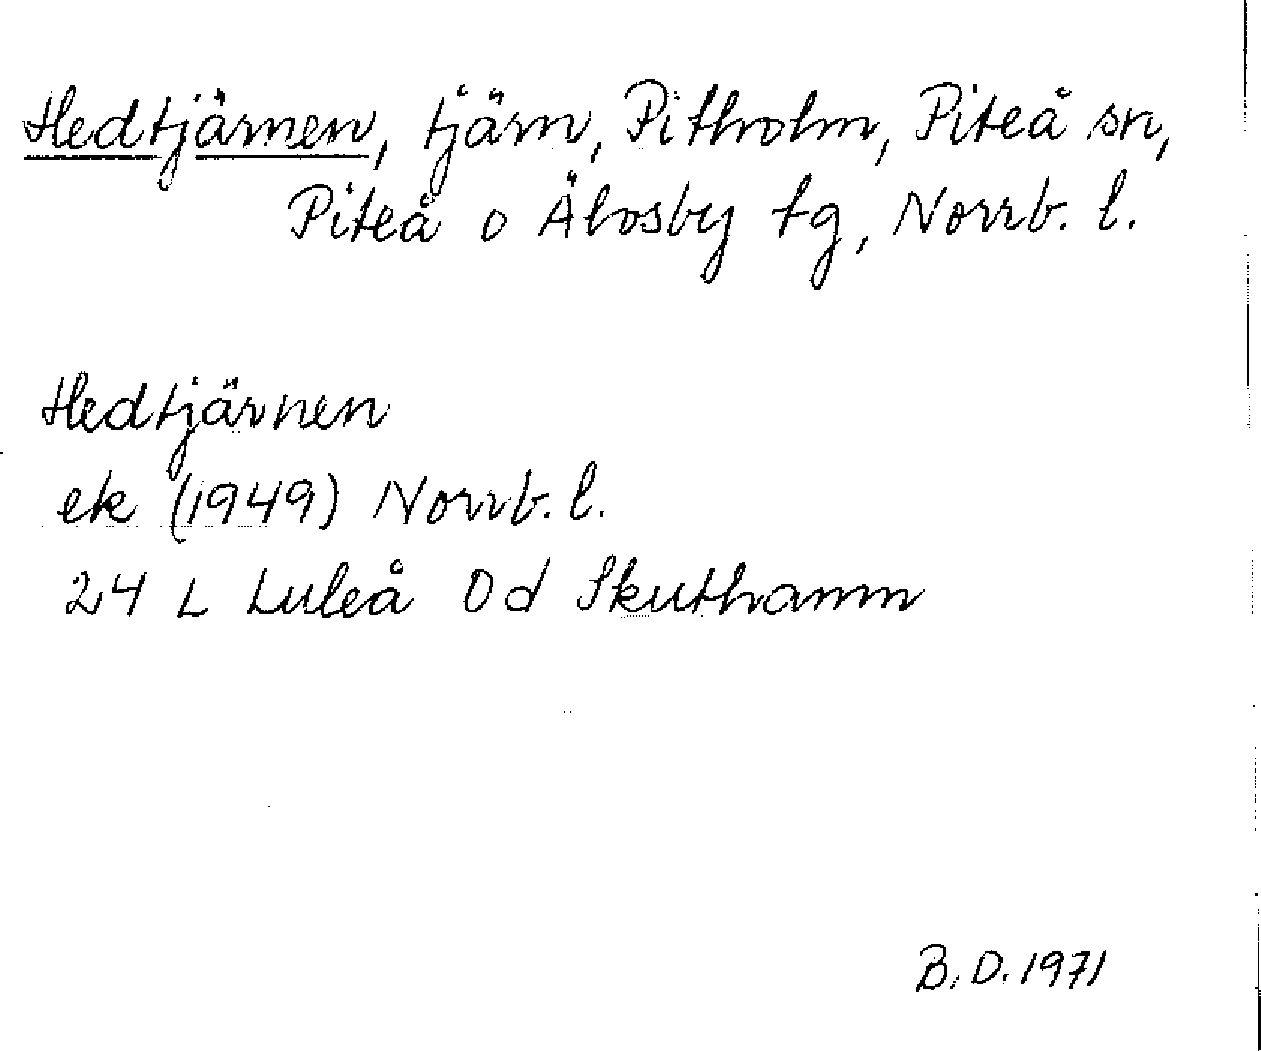 Hedtjärnen, tjärn, Pitholm, Piteå sn,
Piteå o Älvsby tg, Norrb. l.
Hedtjärnen
ek (1949) Norrb. l.
24 L Luleå 0d Skuthamn
B. D. 1971